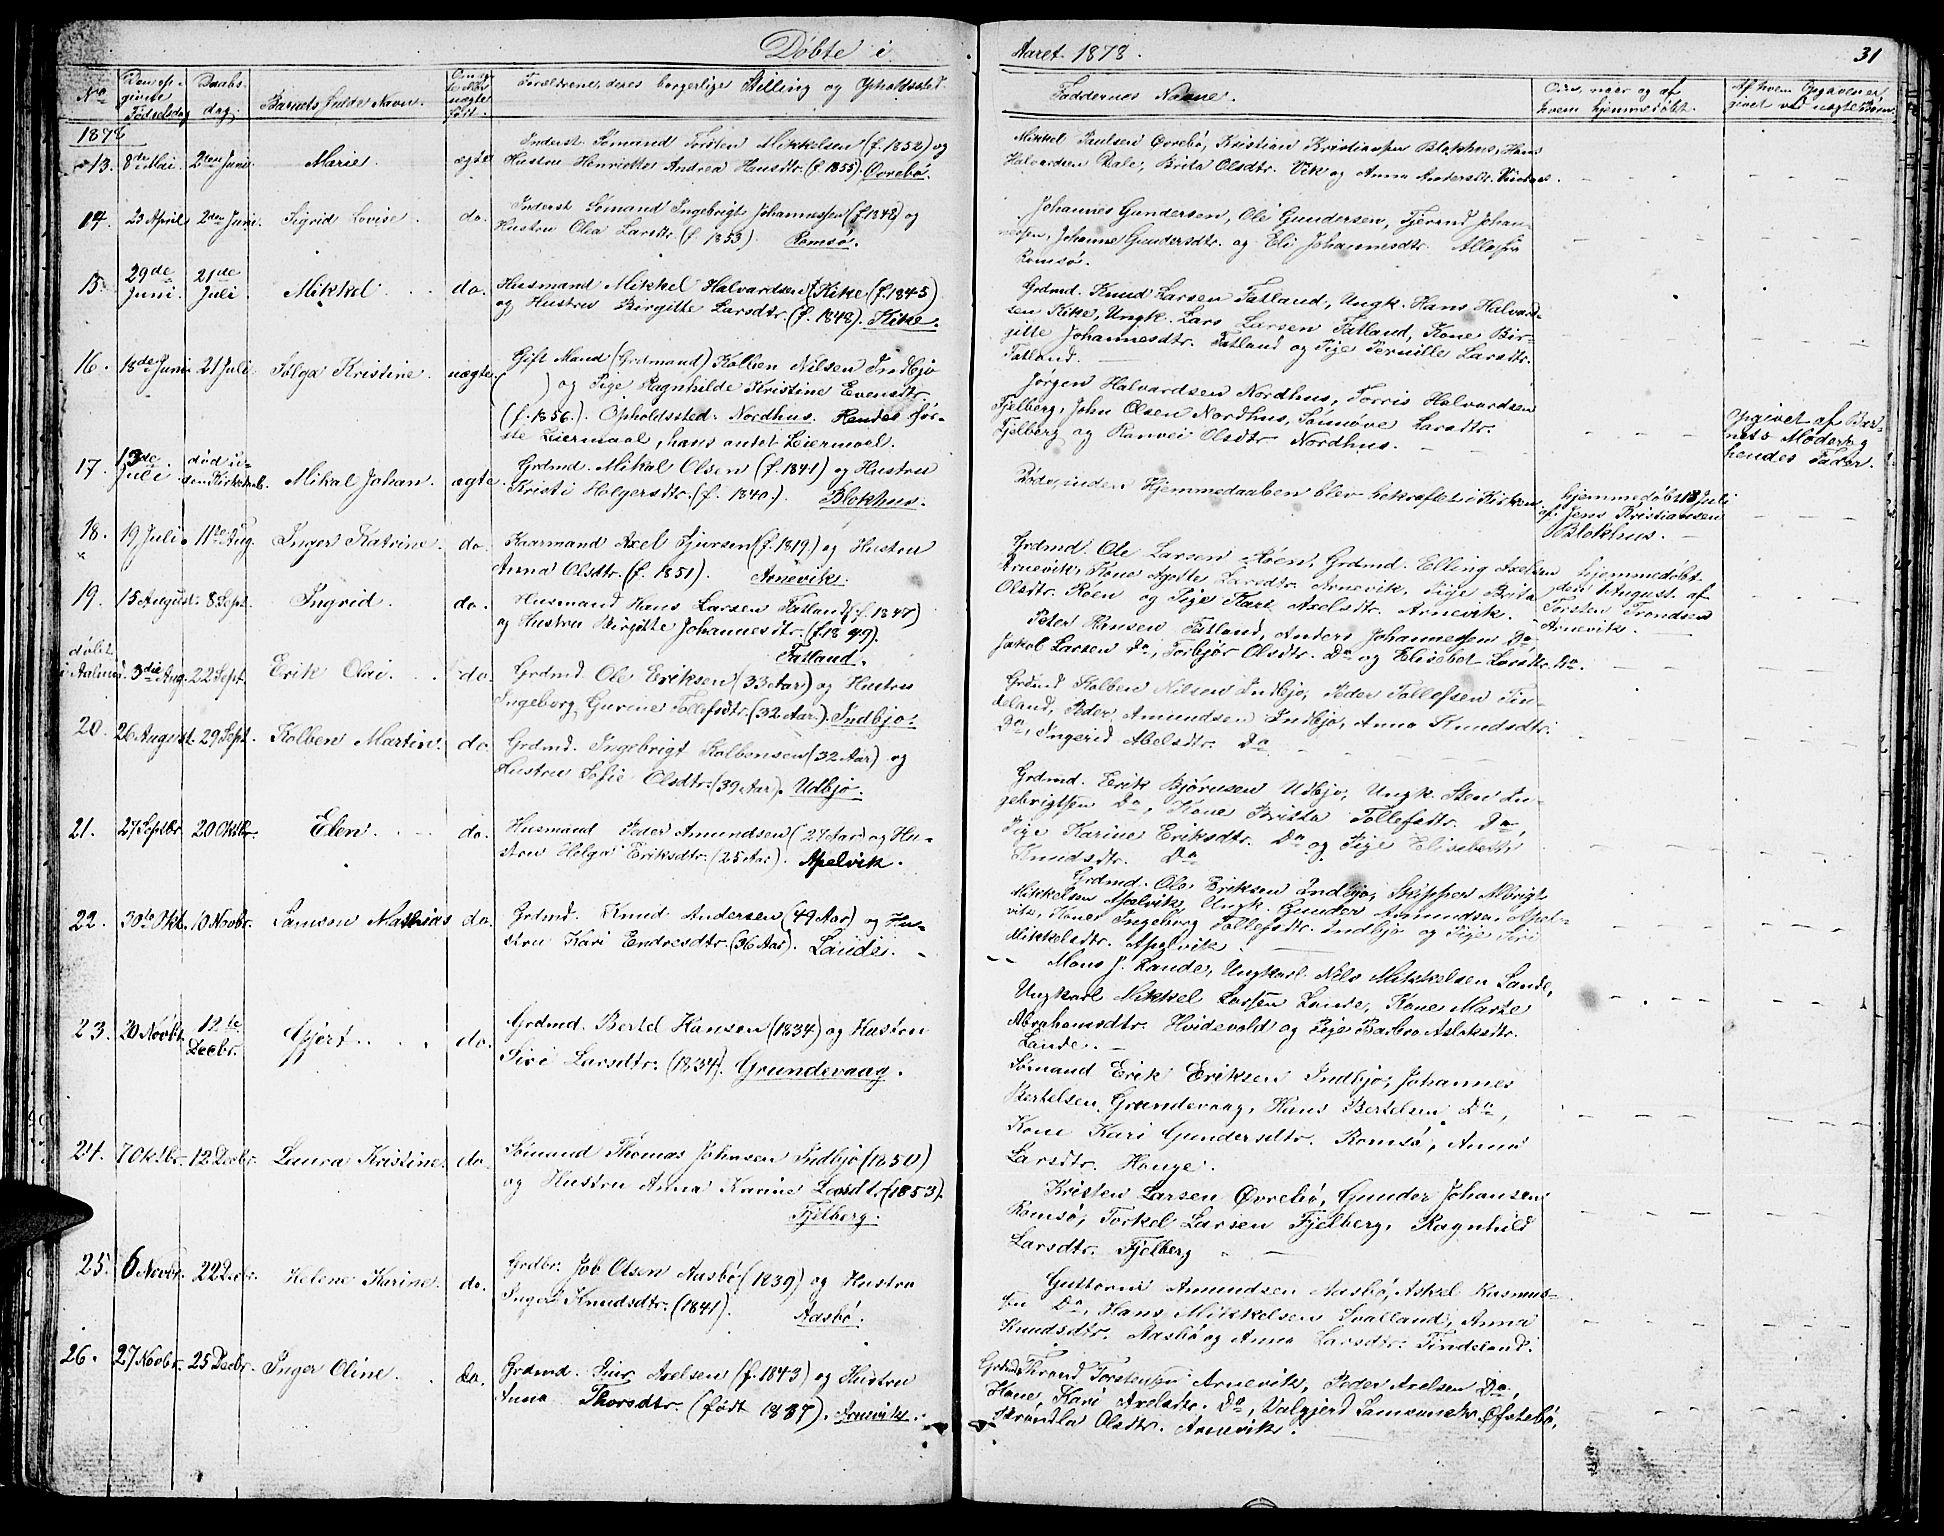 Døbte i
Aaret 1878.
31
No
Den opgivne Fødselsdag
Daabsdag.
Barnets fulde Navn.
Om ægte eller uægte født.
Forældrene, deres borgerlige Stilling og Opholdssted.
Faddernes Navne.
Om, naar og af hvem hjemmedøbt.
Af hvem Opgaven er givet ved uægte Børn.
1878
13. 8de Mai. 2den Juni. Marie ægte
Inderst Sømand Torsten Mikkelsen (f. 1852) og
Hustru Henrikke Andrea Hansdtr. (f. 1855). Øvrebø.
Mikkel Paulsen Øvrebø, Kristian Kristianssen Blokhus, Hans
Halvardsen Dale, Brita Olsdtr. Vik og Anna Andersdtr.
14. 23 April 2den Juni. Sigrid Lovise. do.
Inderst Sømand Ingebrigt Johannessen (f. 1848) og
Hustru Olea Larsdtr. (f. 1853). Romsø.
Johannes Gundersen, Ole Gundersen, Tjerand Johan-
nessen, Johanne Gundersdtr. og Eli Johannesdtr. Alle fra
Romsø.
15. 29de Juni. 21de Juli. Mikkel do.
Husmand Mikkel Halvardsen Kike (f. 1845)
og Hustru Birgitte Larsdtr. (f. 1848). Kike.
Grdmd. Knud Larsen Fatland, Ungk. Hans Halvard-
sen Kike, Ungk. Lars Larsen Fatland, Kone Bir-
gitte Johannesdtr. Fatland og Pige Pernille Larsdtr.
Fatland.
16. 18de Juni. 21 Juli. Solga Kristine. uægte
Gift Mand (Grdmand) Kolben Nilsen Indbjo
( ) og Pige Ragnhilde Kristine Evensdtr.
(f. 1856). Opholdssted: Nordhus. Hendes før-
ste Leiermaal, hans andet Leiermaal.
Jørgen Halvardsen Nordhus, Torris Halvardsen
Fjelberg, John Olsen Nordhus, Sønnøve Larsdtr.
Fjelberg og Ranvei Olsdtr. Nordhus.
Opgivet af Bar-
nets Moder og
hendes Fader.
17. 13de Juli død u-
den Kirkedaab. Mikal Johan. ægte
Grdmd. Mikal Olsen (f. 1841) og Hustru
Kristi Holgersdtr. (f. 1840.) Blokhus.
Døde, inden Hjemmedaaben blev bekræftet i Kirken.
hjemmedøbt 13 Juli
af Jens Kristiansen
Blokhus.
18. 19 Juli. 11te Aug. Inger Katrine. do.
Kaarmand Axel Sjursen (f. 1819) og Hustru
Anna Olsdtr. (f. 1851). Arnevik.
Grdmd. Ole Larsen Røen, Grdmd. Elling Axelsen
Arnevik, Kone Agatte Larsdtr. Arnevik, Pige Brita
Olsdtr. Røen og Pige Kari Axelsdtr. Arnevik.
hjemmedøbt
den August af
Torsten Trondsen
Arnevik.
19. 15 August. 8 Sept. Ingrid. do.
Husmand Hans Larsen Fatland (f. 1847)
og Hustru Birgitte Johannesdtr. (f. 1849).
Fatland.
Peter Hansen Fatland, Anders Johannessen Do,
Jakob Larsen Do, Torbjør Olsdtr. Do og Elisebet Larsdtr. Do.
døbt
i 3die Aug. 22 Sept. Erik Olai. do.
Grdmd. Ole Eriksen (33 Aar) og Hustru
Ingeborg Gurine Tollefsdtr. (32 Aar). Indbjo.
Grdmd Kolben Nilsen Indbjo, Peder Tollefsen Tin-
deland, Peder Amundsen Indbjo, Anna Knudsdtr.
Do, Ingerid Abelsdtr. Do
20. 26 August. 29 Sept. Kolben Martin. do.
Grdmd. Ingebrigt Kolbensen (32 Aar) og
Hustru Sofie Olsdtr. (39 Aar). Udbjo.
Grdmd. Erik Bjørnsen Udbjo, Ungk. Sten In-
gebrigtsen Do, Kone Krista Tollefsdtr. Do,
Pige Karine Eriksdtr. Do og Pige Elisabeth
Knudsdtr. Do
21. 27 Septbr. 20 Oktbr. Elen do.
Husmand Peder Amundsen (27 Aar) og Hu-
stru Helga Eriksdtr. (25 Aar). Apelvik.
Grdmd. Ole Eriksen Indbjo, Skipper Albrigt
Mikkelsen Apelvik, Ungk. Gunder Amundsen Apel-
vik, Kone Ingeborg Tollefsdtr. Indbjo og Pige Siri
Mikkelsdtr. Apelvik.
22. 30te Okt. 10 Novbr. Samson Mathias do.
Grdmd. Knud Andersen (49 Aar) og Hu-
stru Kari Endresdtr. (36 Aar). Lande.
Mons J. Lande, Ungkarl Nils Mikkelsen Lande,
Ungkarl Mikkel Larsen Lande, Kone Marte
Abrahamsdtr. Hvidevold og Pige Barbro Aslaksdtr.
Lande.
23. 20 Novbr. 12te Decbr. Gjert do.
Grdmd. Bertel Hansen (1834) og Hustru
Siri Larsdtr. (1834). Grundevaag.
Sømand Erik Eriksen Indbjo, Johannes
Bertelsen Grundevaag, Hans Bertelsen Do,
Kone Kari Gundersdtr. Romsø, Anna
Larsdtr. Hauge.
24. 7 Oktbr. 12 Decbr. Laura Kristine. do.
Sømand Thomas Johnsen Indbjo (1850)
og Hustru Anna Karine Larsdt. (1853).
Fjelberg.
Kristen Larsen Øvrebø, Gunder Johansen
Romsø, Torkel Larsen Fjelberg, Ragnhild
Larsdtr. Fjelberg
25. 6 Novbr. 22 Decbr. Helene Karine. do.
Grdbr. Job Olsen Aasbø (1839) og Hustru
Inger Knudsdtr. (1841). Aasbø.
Guttorm Amundsen Aasbø, Askel Rasmus-
sen Do, Hans Mikkelsen Svalland, Anna
Knudsdtr. Aasbø og Anna Larsdtr. Tindeland.
26. 27 Novbr. 25 Decbr. Inger Oline. do.
Grdmd. Siur Axelsen (f. 1843) og Hustru
Anna Thorsdtr. (født 1837). Arnevik.
Grdmd. Torstensen Arnevik, Peder Axelsen Do,
Kone Kari Axelsdtr. Do, Valgjerd Samsonsdtr. Øfstebø,
Olsdtr. Arnevik.